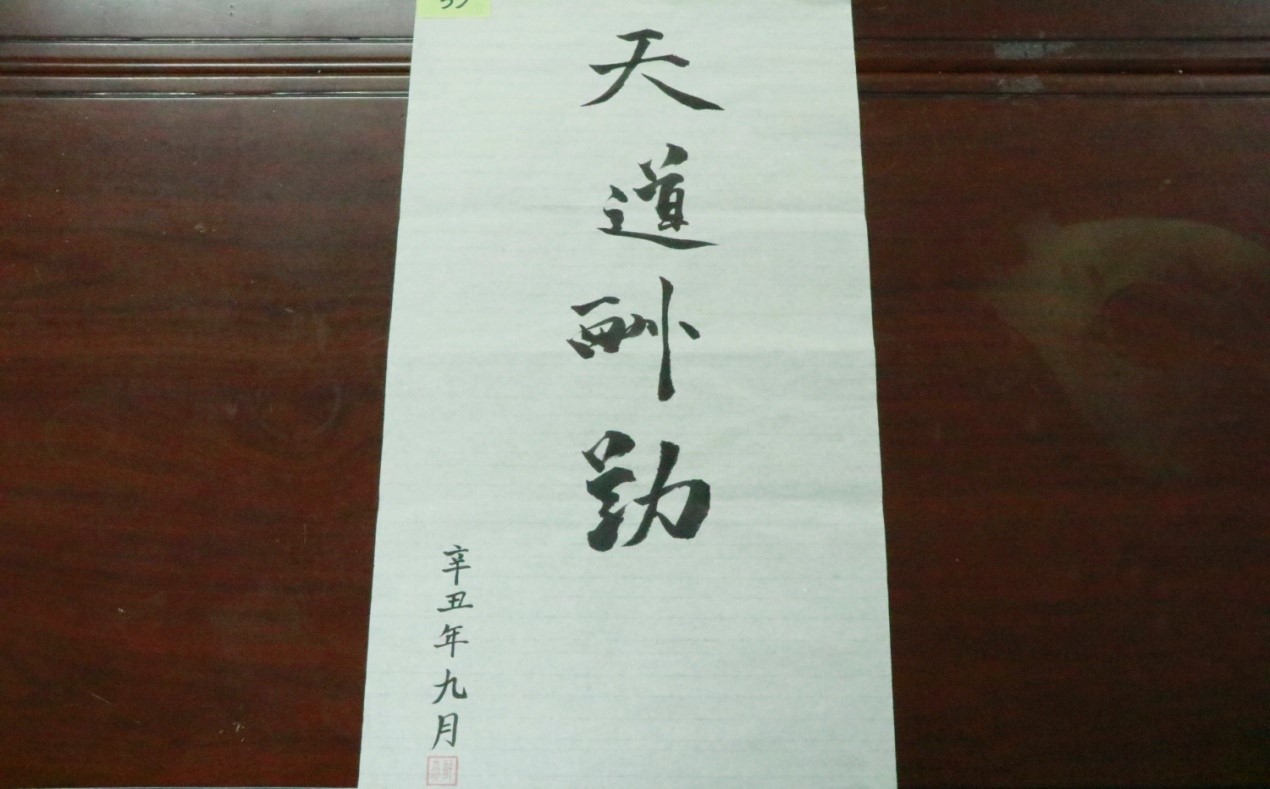 天道酬勤
辛丑年九月